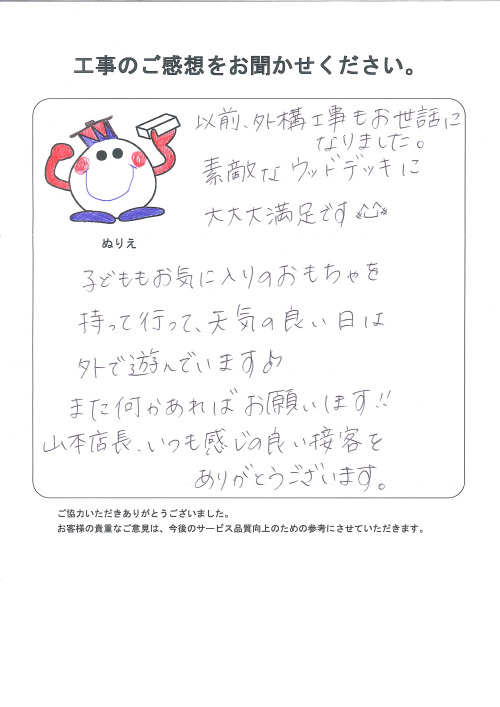 工事のご感想をお聞かせください。
以前、外構工事もお世話に
なりました。
素敵なウッドデッキに
大大大満足です^^
ぬりえ
子どももお気に入りのおもちゃを
持って行って、天気の良い日は
外で遊んでいます♪
また何かあればお願いします!!
山本店長、いつも感じの良い接客を
ありがとうございます。
ご協力いただきありがとうございました。
お客様の貴重なご意見は、今後のサービス品質向上のための参考にさせていただきます。